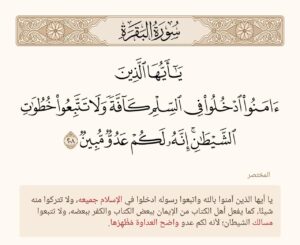 سُورَةُ الْبَقَرَةِ
يَٰٓأَيُّهَا ٱلَّذِينَ
ءَامَنُواْ ٱدۡخُلُواْ فِي ٱلسِّلۡمِ كَآفَّةٗ وَلَا تَتَّبِعُواْ خُطُوَٰتِ
ٱلشَّيۡطَٰنِۚ إِنَّهُۥ لَكُمۡ عَدُوّٞ مُّبِينٞ ٢٠٨
المختصر
يا أيها الذين آمنوا بالله واتبعوا رسوله ادخلوا في الإسلام جميعه، ولا تتركوا منه
شيئًا، كما يفعل أهل الكتاب من الإيمان ببعض الكتاب والكفر ببعضه، ولا تتبعوا
مسالك الشيطان؛ لأنه لكم عدو واضح العداوة مُظْهِرُها.